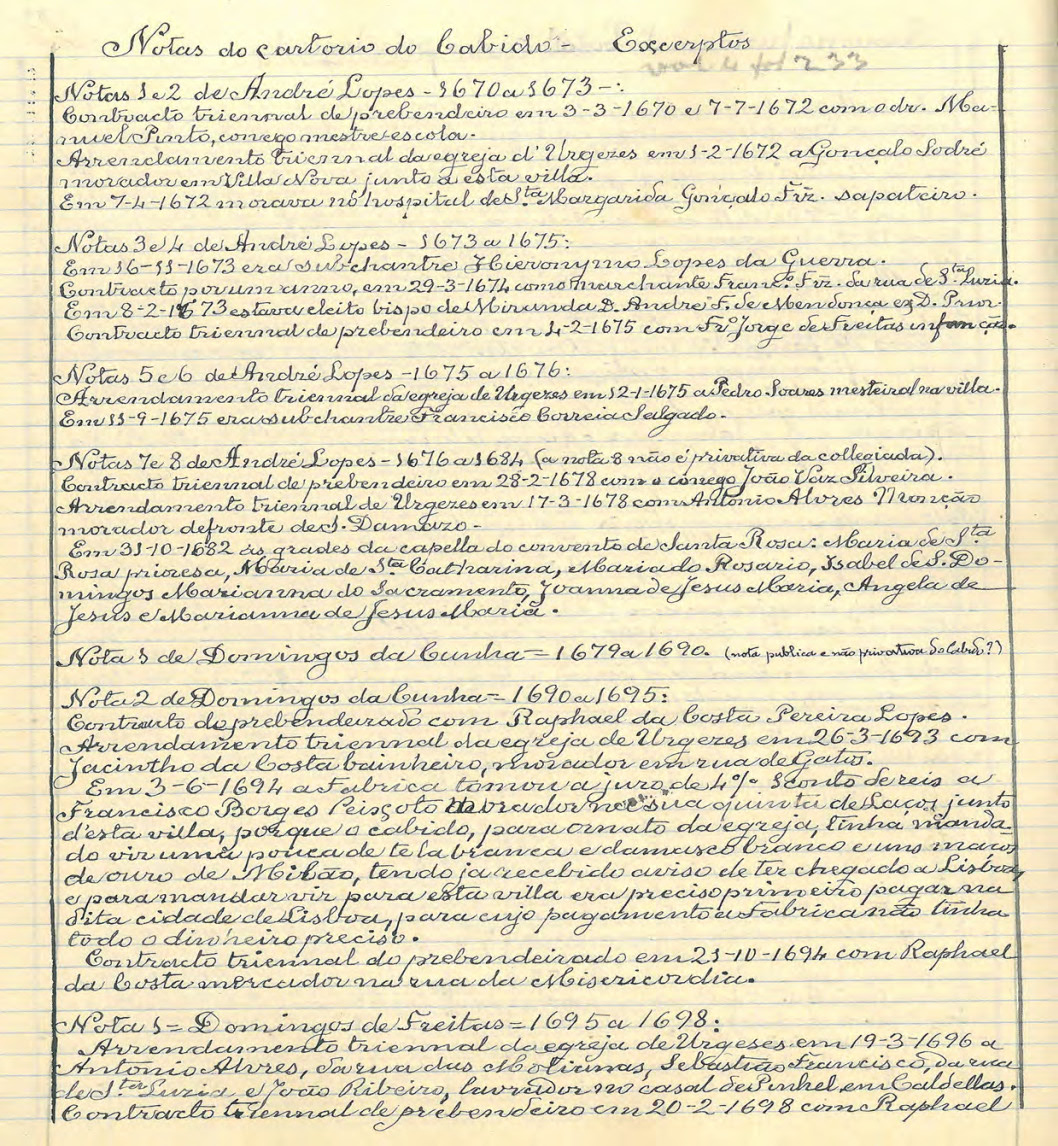 Notas do cartorio do Cabido - Excerptos
vol 4 fol 233
Notas 1 e 2 de André Lopes - 1670 a 1673 -:
Contracto triennal de prebendeiro em 3-3-1670 e 7-7-1672 com o dr. Ma-
nuel Pinto, conego mestre-escola.
Arrendamento triennal da egreja d'Urgezes em 1-2-1672 a Gonçalo Sodré
morador em Villa Nova junto a esta villa.
Em 7-4-1672 morava no hospital de S.ta Margarida Gonçalo Frz. sapateiro.
Notas 3 e 4 de André Lopes - 1673 a 1675:
Em 16-11-1673 era subchantre Hieronymo Lopes da Guerra.
Contracto por um anno, em 29-3-1674 com o marchante Franc.º Frz. da rua de S.ta Luzia.
Em 8-2-1673 estava eleito bispo de Miranda D. André F. de Mendonça ex D. Prior.
Contracto triennal de prebendeiro em 4-2-1675 com Frº Jorge de Freitas infanção.
Notas 5 e 6 de André Lopes - 1675 a 1676:
Arrendamento triennal da egreja de Urgezes em 12-1-1675 a Pedro Soares mesteiral na villa.
Em 11-9-1675 era subchantre Francisco Correia Salgado.
Notas 7 e 8 de André Lopes - 1676 a 1684 (a nota 8 não é privativa da collegiada).
Contracto triennal de prebendeiro em 28-2-1678 com o conego João Vaz Silveira.
Arrendamento triennal de Urgezes em 17-3-1678 com Antonio Alvres Monção
morador defronte de S. Damazo -
Em 31-10-1682 ás grades da capella do convento de Santa Rosa: Maria de S.ta
Rosa prioresa, Maria de S.ta Catharina, Maria do Rosario, Isabel de S. Do-
mingos Marianna do Sacramento, Joanna de Jesus Maria, Angela de
Jesus e Marianna de Jesus Maria.
Nota 1 de Domingos da Cunha = 1679 a 1690. (nota publica e não privativa do Cabido?)
Nota 2 de Domingos da Cunha = 1690 a 1695:
Contracto do prebendeirado com Raphael da Costa Pereira Lopes.
Arrendamento triennal da egreja de Urgezes em 26-3-1693 com
Jacintho da Costa bainheiro, morador em rua de Gatos.
Em 3-6-1694 a Fabrica tomou a juro de 4% 1 conto de reis a
Francisco Borges Peixoto morador na sua quinta de Laços junto
d'esta villa, porque o cabido, para ornato da egreja, tinha manda-
do vir uma pouca de tela branca e damasco branco e uns maços
de ouro de Milão, tendo ja recebido aviso de ter chegado a Lisboa,
e para mandar vir para esta villa era preciso primeiro pagar na
dita cidade de Lisboa, para cujo pagamento a Fabrica não tinha
todo o dinheiro preciso.
Contracto triennal do prebendeirado em 21-10-1694 com Raphael
da Costa mercador na rua da Misericordia.
Nota 1 = Domingos de Freitas = 1695 a 1698:
Arrendamento triennal da egreja de Urgeses em 19-3-1696 a
Antonio Alvres, da rua das Molirinas, Sebastião Francisco, da rua
de S.ta Luzia e João Ribeiro, lavrador no casal de Pinhel em Caldellas.
Contracto triennal de prebendeiro em 20-2-1698 com Raphael